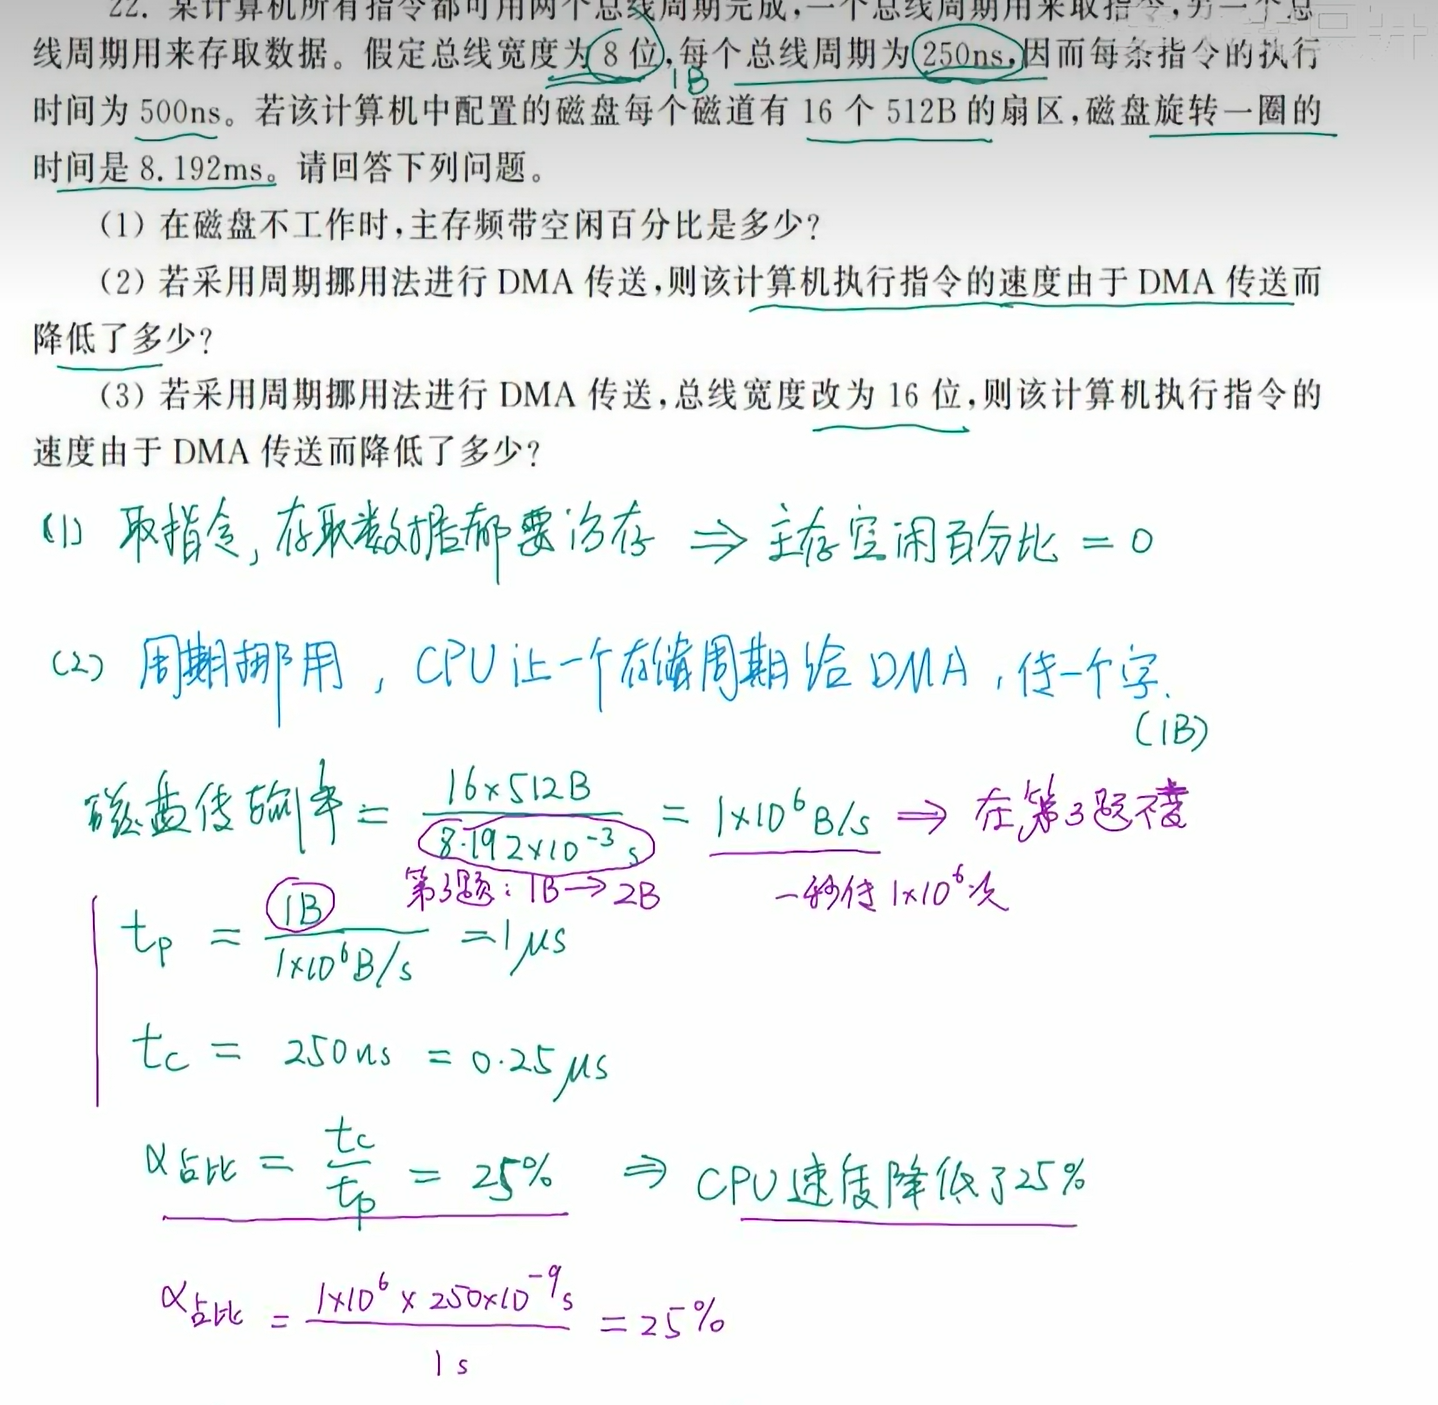 22. 某计算机所有指令都可用两个总线周期完成,一个总线周期用来取指令,另一个总
线周期用来存取数据。假定总线宽度为8位,每个总线周期为250ns,因而每条指令的执行
1B
时间为500ns。若该计算机中配置的磁盘每个磁道有16个512B的扇区,磁盘旋转一圈的
时间是8.192ms。请回答下列问题。
(1) 在磁盘不工作时,主存频带空闲百分比是多少?
(2) 若采用周期挪用法进行DMA传送,则该计算机执行指令的速度由于DMA传送而
降低了多少?
(3) 若采用周期挪用法进行DMA传送,总线宽度改为16位,则该计算机执行指令的
速度由于DMA传送而降低了多少?
(1) 取指令,存取数据都要访存 ⇒ 主存空闲百分比 = 0
(2) 周期挪用,CPU让一个存储周期给DMA,传一个字.
(1B)
磁盘传输率 = 16×512B / 8.192×10⁻³s = 1×10⁶B/s ⇒ 在第3题不变
第3题:1B→2B 一秒传1×10⁶次
tp = 1B / 1×10⁶B/s = 1μs
tc = 250ns = 0.25μs
α占比 = tc / tp = 25% ⇒ CPU速度降低了25%
α占比 = 1×10⁶×250×10⁻⁹s / 1s = 25%